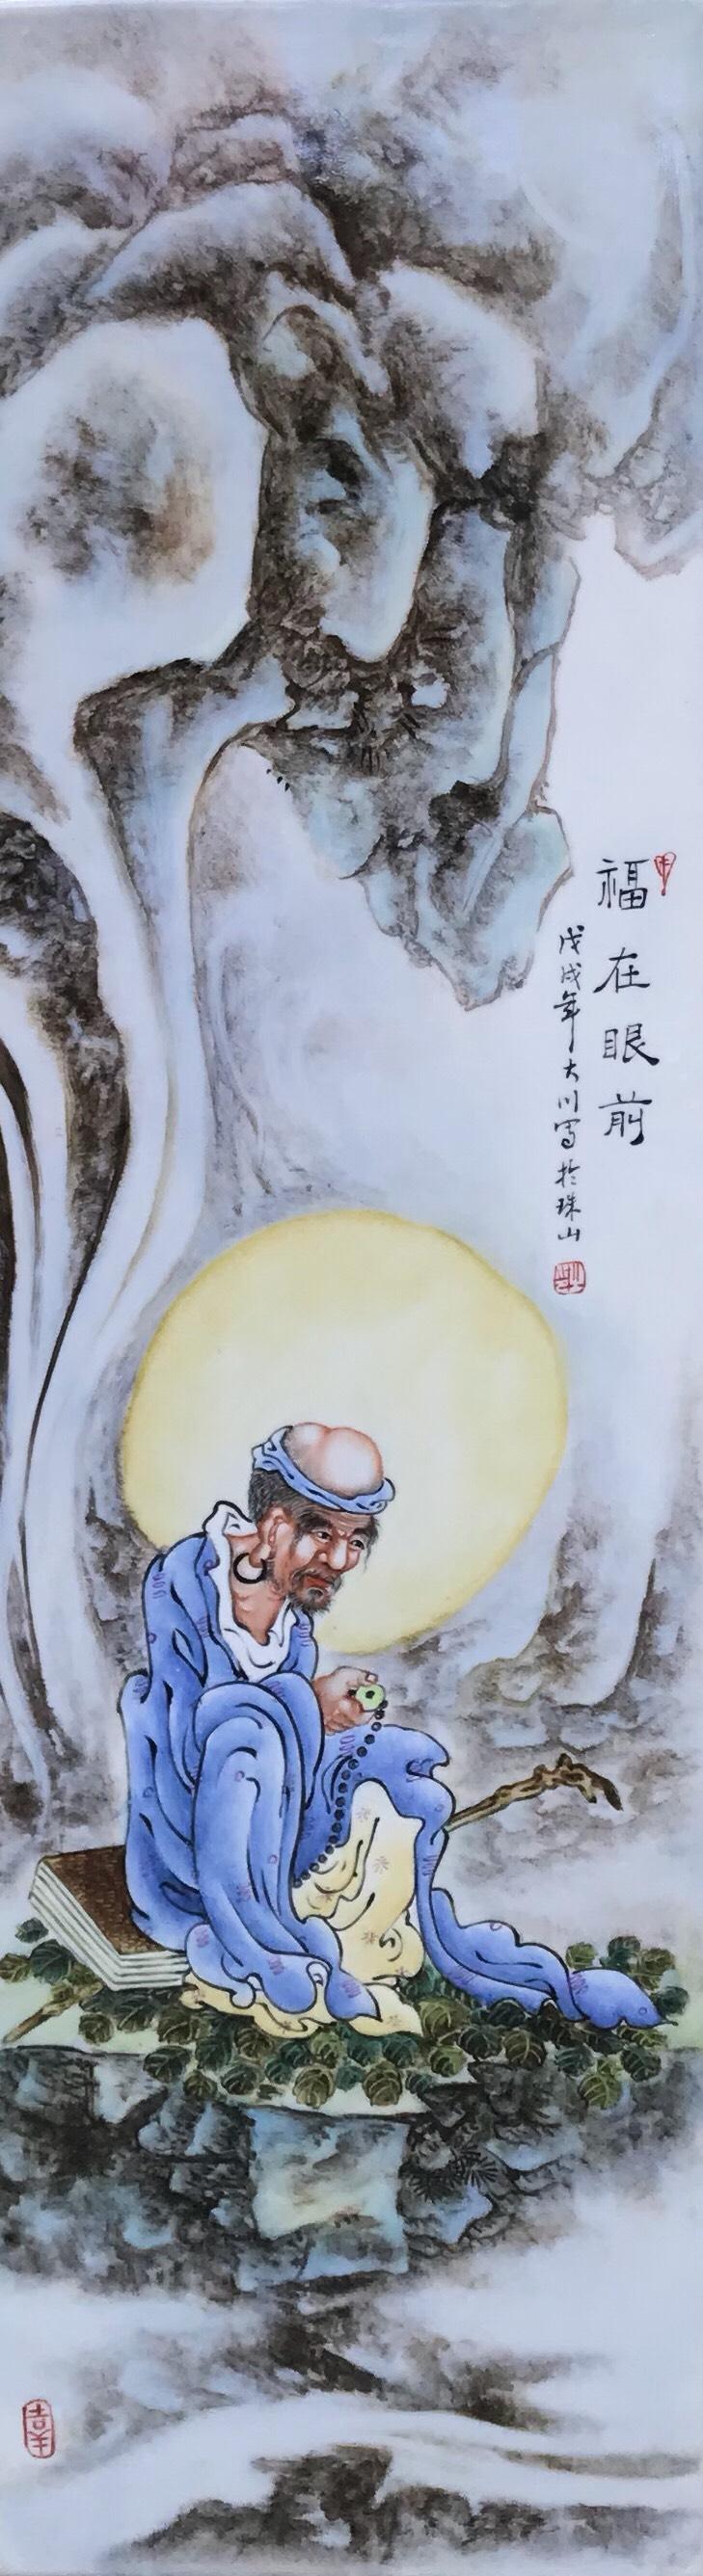 福在眼前
戊戌年大川写於珠山
吉羊